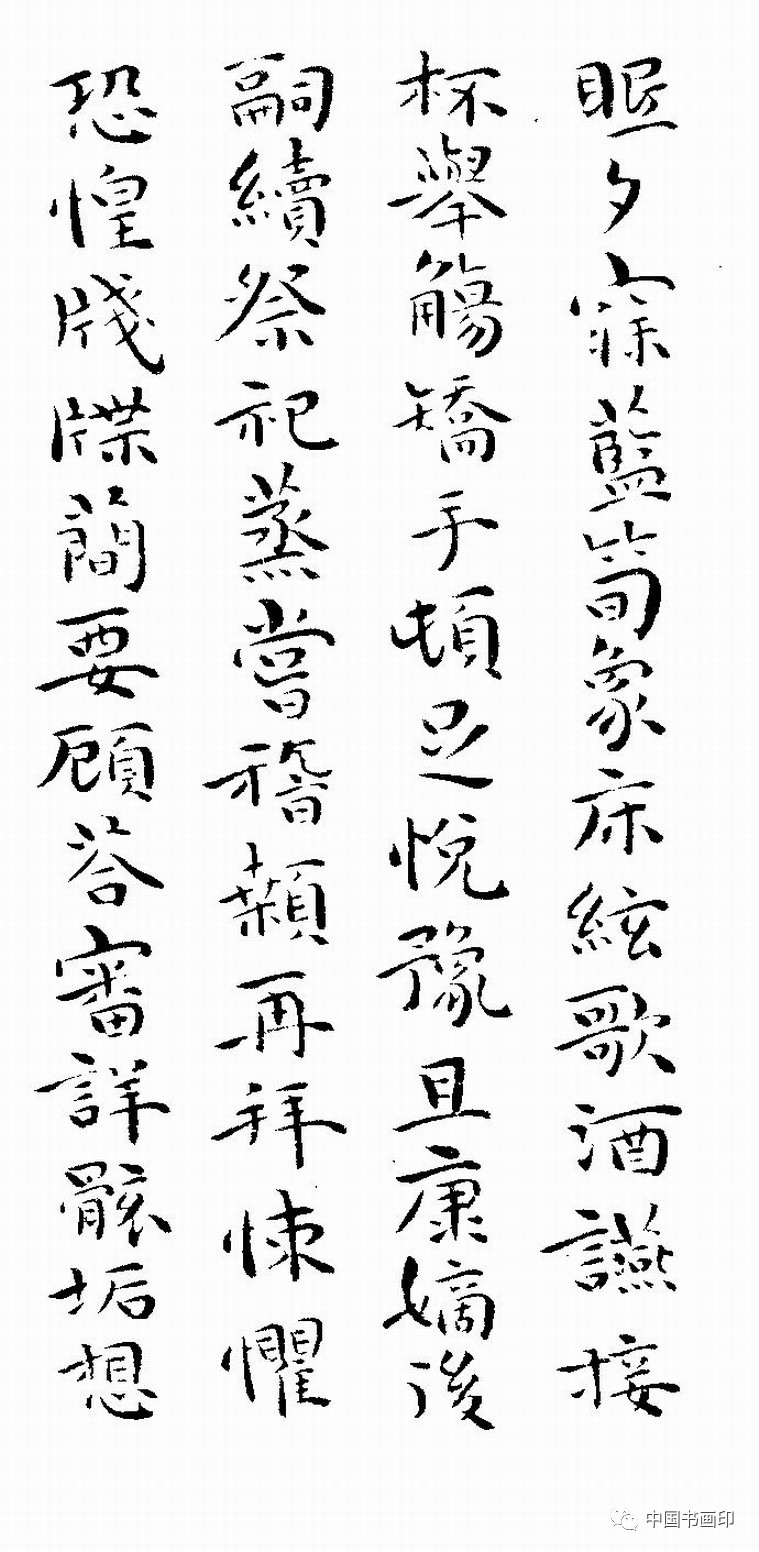 眠夕寐藍筍象床絃歌酒讌接
杯舉觴矯手頓足悅豫且康嫡後
嗣續祭祀蒸嘗稽顙再拜悚懼
恐惶牋牒簡要顧荅審詳骸垢想
中国书画印